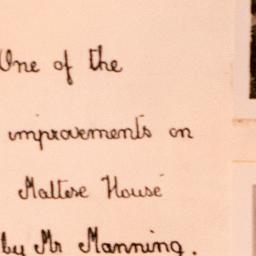 One of the
improvements on
Maltese House
by Mr Manning.